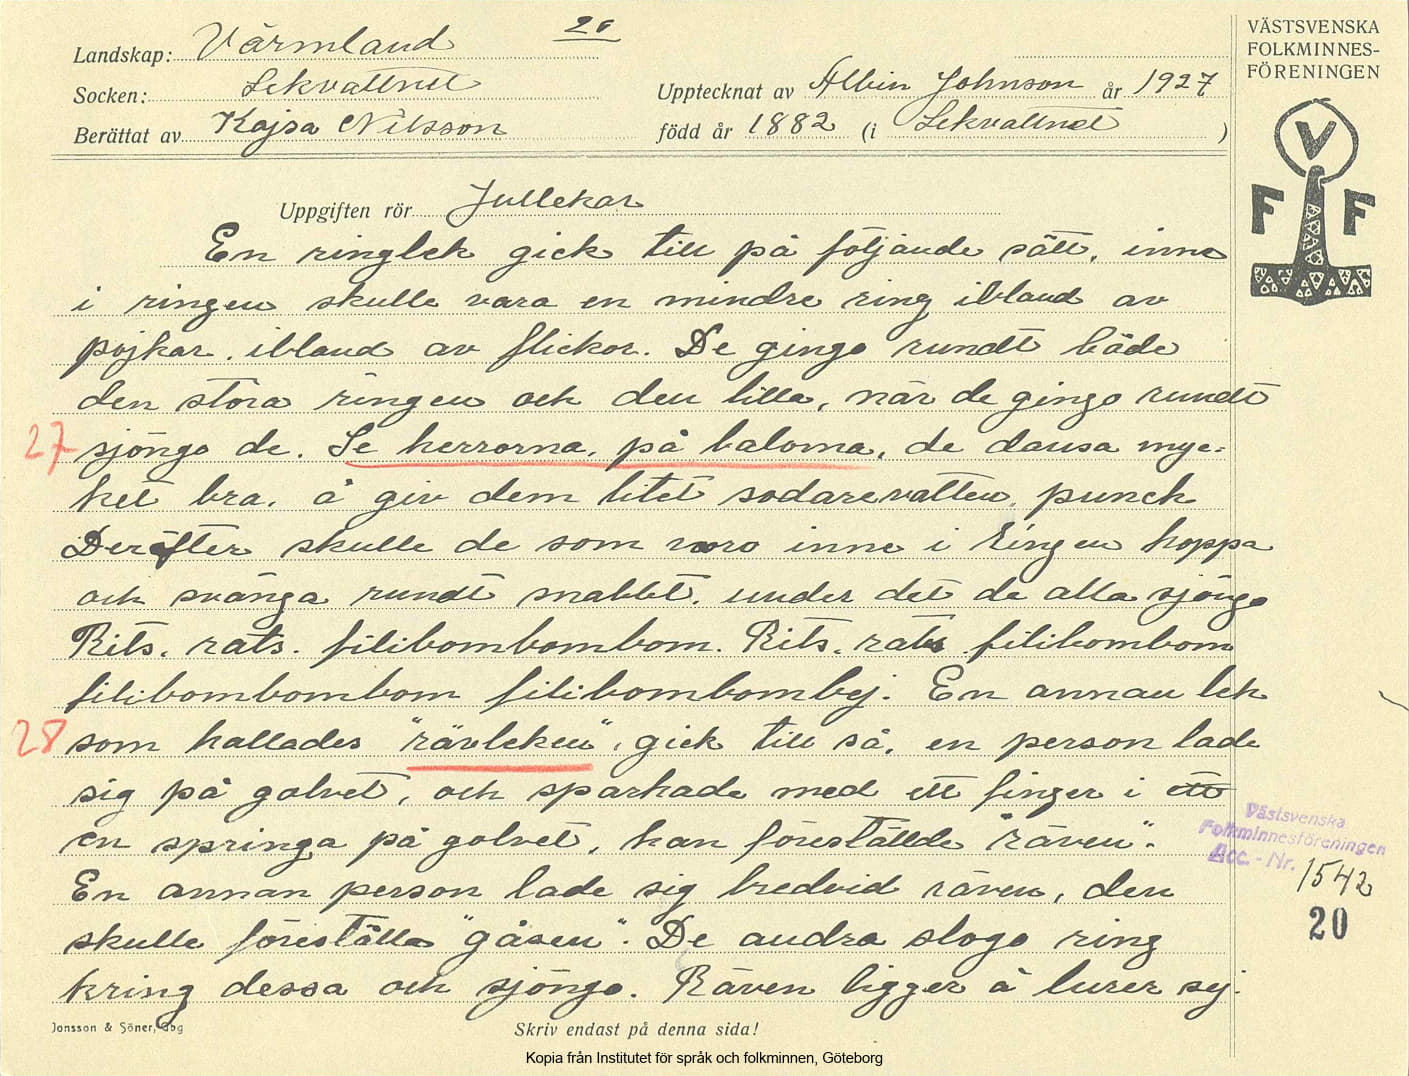 20
Landskap: Värmland
Socken: Lekvattnet
Berättat av Kajsa Nilsson
Upptecknat av Albin Johnson år 1927
född år 1882 (i Lekvattnet )
VÄSTSVENSKA
FOLKMINNES-
FÖRENINGEN
V
F F
Uppgiften rör Jullekar
En ringlek gick till på följande sätt, inne
i ringen skulle vara en mindre ring ibland av
pojkar, ibland av flickor. De gingo rundt både
den stora ringen och den lilla, när de gingo rundt
27 sjöngo de. Se herrorna, på balorna, de dansa myc=
ket bra, å giv dem litet sodarevatten, punch
Derefter skulle de som voro inne i ringen hoppa
och svänga rundt snabbt, under det de alla sjöngo
Rits, rats. filibombombom. Rits, rats filibombom
filibombombom filibombombej. En annan lek
28 som kallades "rävleken", gick till så, en person lade
sig på golvet, och sparkade med ett finger i ett
en springa på golvet, han föreställde "räven".
En annan person lade sig bredvid räven, den
skulle föreställa "gåsen". De andra slogo ring
kring dessa och sjöngo. Räven ligger å lurer sej.
Västsvenska
Folkminnesföreningen
Acc. - Nr. 1542
20
Jonsson & Söner, Gbg
Skriv endast på denna sida!
Kopia från Institutet för språk och folkminnen, Göteborg